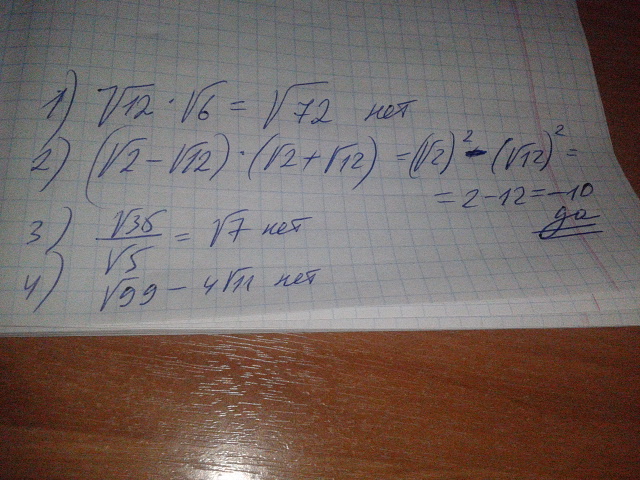 1) √12 · √6 = √72 нет
2) (√2 − √12) · (√2 + √12) = (√2)² - (√12)² =
= 2 − 12 = −10
да
3) √35 / √5 = √7 нет
4) √99 − 4√11 нет